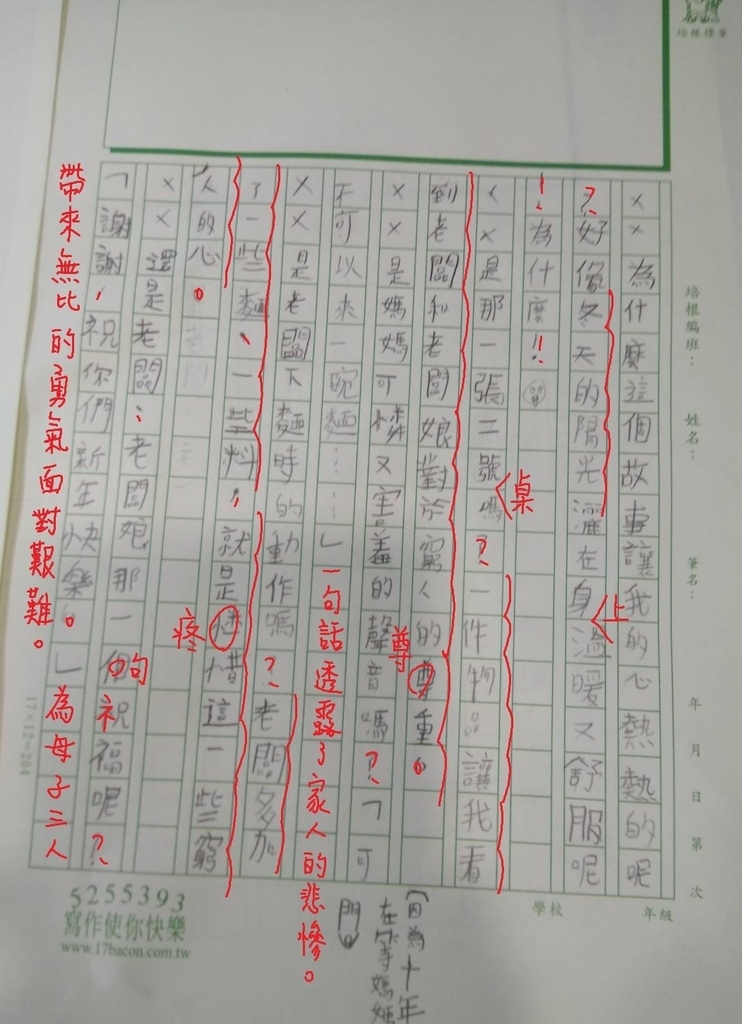 培根標章
培根編班：　姓名：　筆名：　年　月　日　第　次
××為什麼這個故事讓我的心熱熱的呢
？好像冬天的陽光灑在身溫暖又舒服呢
上
！為什麼!!
××是那一張二號嗎？一件物品讓我看
桌
到老闆和老闆娘對於窮人的尊重。
尊
××是媽媽可憐又害羞的聲音嗎？「可
不可以來一碗麵……」一句話透露了家人的悲慘。
××是老闆下麵時的動作嗎？老闆多加
了一些麵、一些料，就是憐惜這一些窮
疼
人的心。
××還是老闆：老闆娘那一個祝福呢？
句
「謝謝，祝你們新年快樂。」為母子三人
帶來無比的勇氣面對艱難。
17×12=204
學校　年級
5255393
寫作使你快樂
www.17bacon.com.tw
(因為十年
在等媽媽